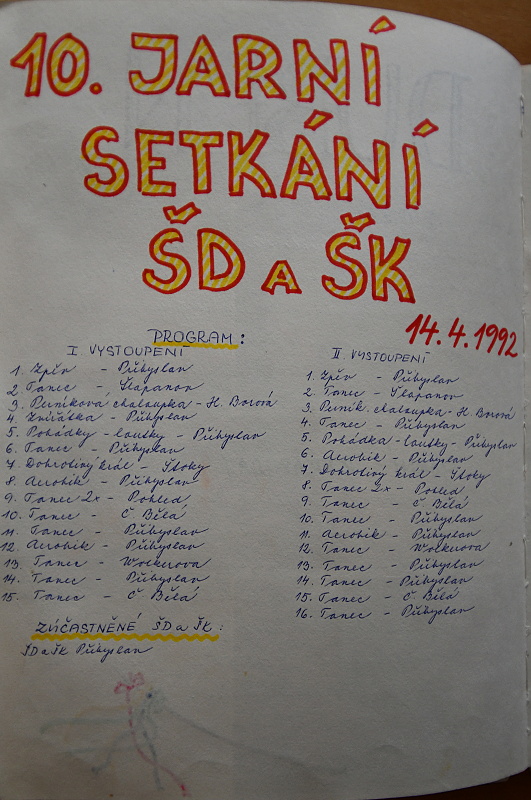 10. JARNÍ
SETKÁNÍ
ŠD A ŠK
14.4.1992
PROGRAM:
I VYSTOUPENÍ
1. Zpěv - Přibyslav
2. Tanec - Šlapanov
3. Perníková chaloupka - H. Borová
4. Zvířátka - Přibyslav
5. Pohádky - loutky - Přibyslav
6. Tanec - Přibyslav
7. Dobrotivý král - Štoky
8. Aerobik - Přibyslav
9. Tanec 2x - Pohled
10. Tanec - Č Bělá
11. Tanec - Přibyslav
12. Aerobik - Přibyslav
13. Tanec - Wolkerova
14. Tanec - Přibyslav
15. Tanec - Č Bělá
II VYSTOUPENÍ
1. Zpěv - Přibyslav
2. Tanec - Šlapanov
3. Perník. chaloupka - H. Borová
4. Tanec - Přibyslav
5. Pohádka - loutky - Přibyslav
6. Aerobik - Přibyslav
7. Dobrotivý král - Štoky
8. Tanec 2x - Pohled
9. Tanec - Č. Bělá
10. Tanec - Přibyslav
11. Aerobik - Přibyslav
12. Tanec - Wolkerova
13. Tanec - Přibyslav
14. Tanec - Přibyslav
15. Tanec - Č. Bělá
16. Tanec - Přibyslav
ZÚČASTNĚNÉ ŠD a ŠK:
ŠD a ŠK Přibyslav